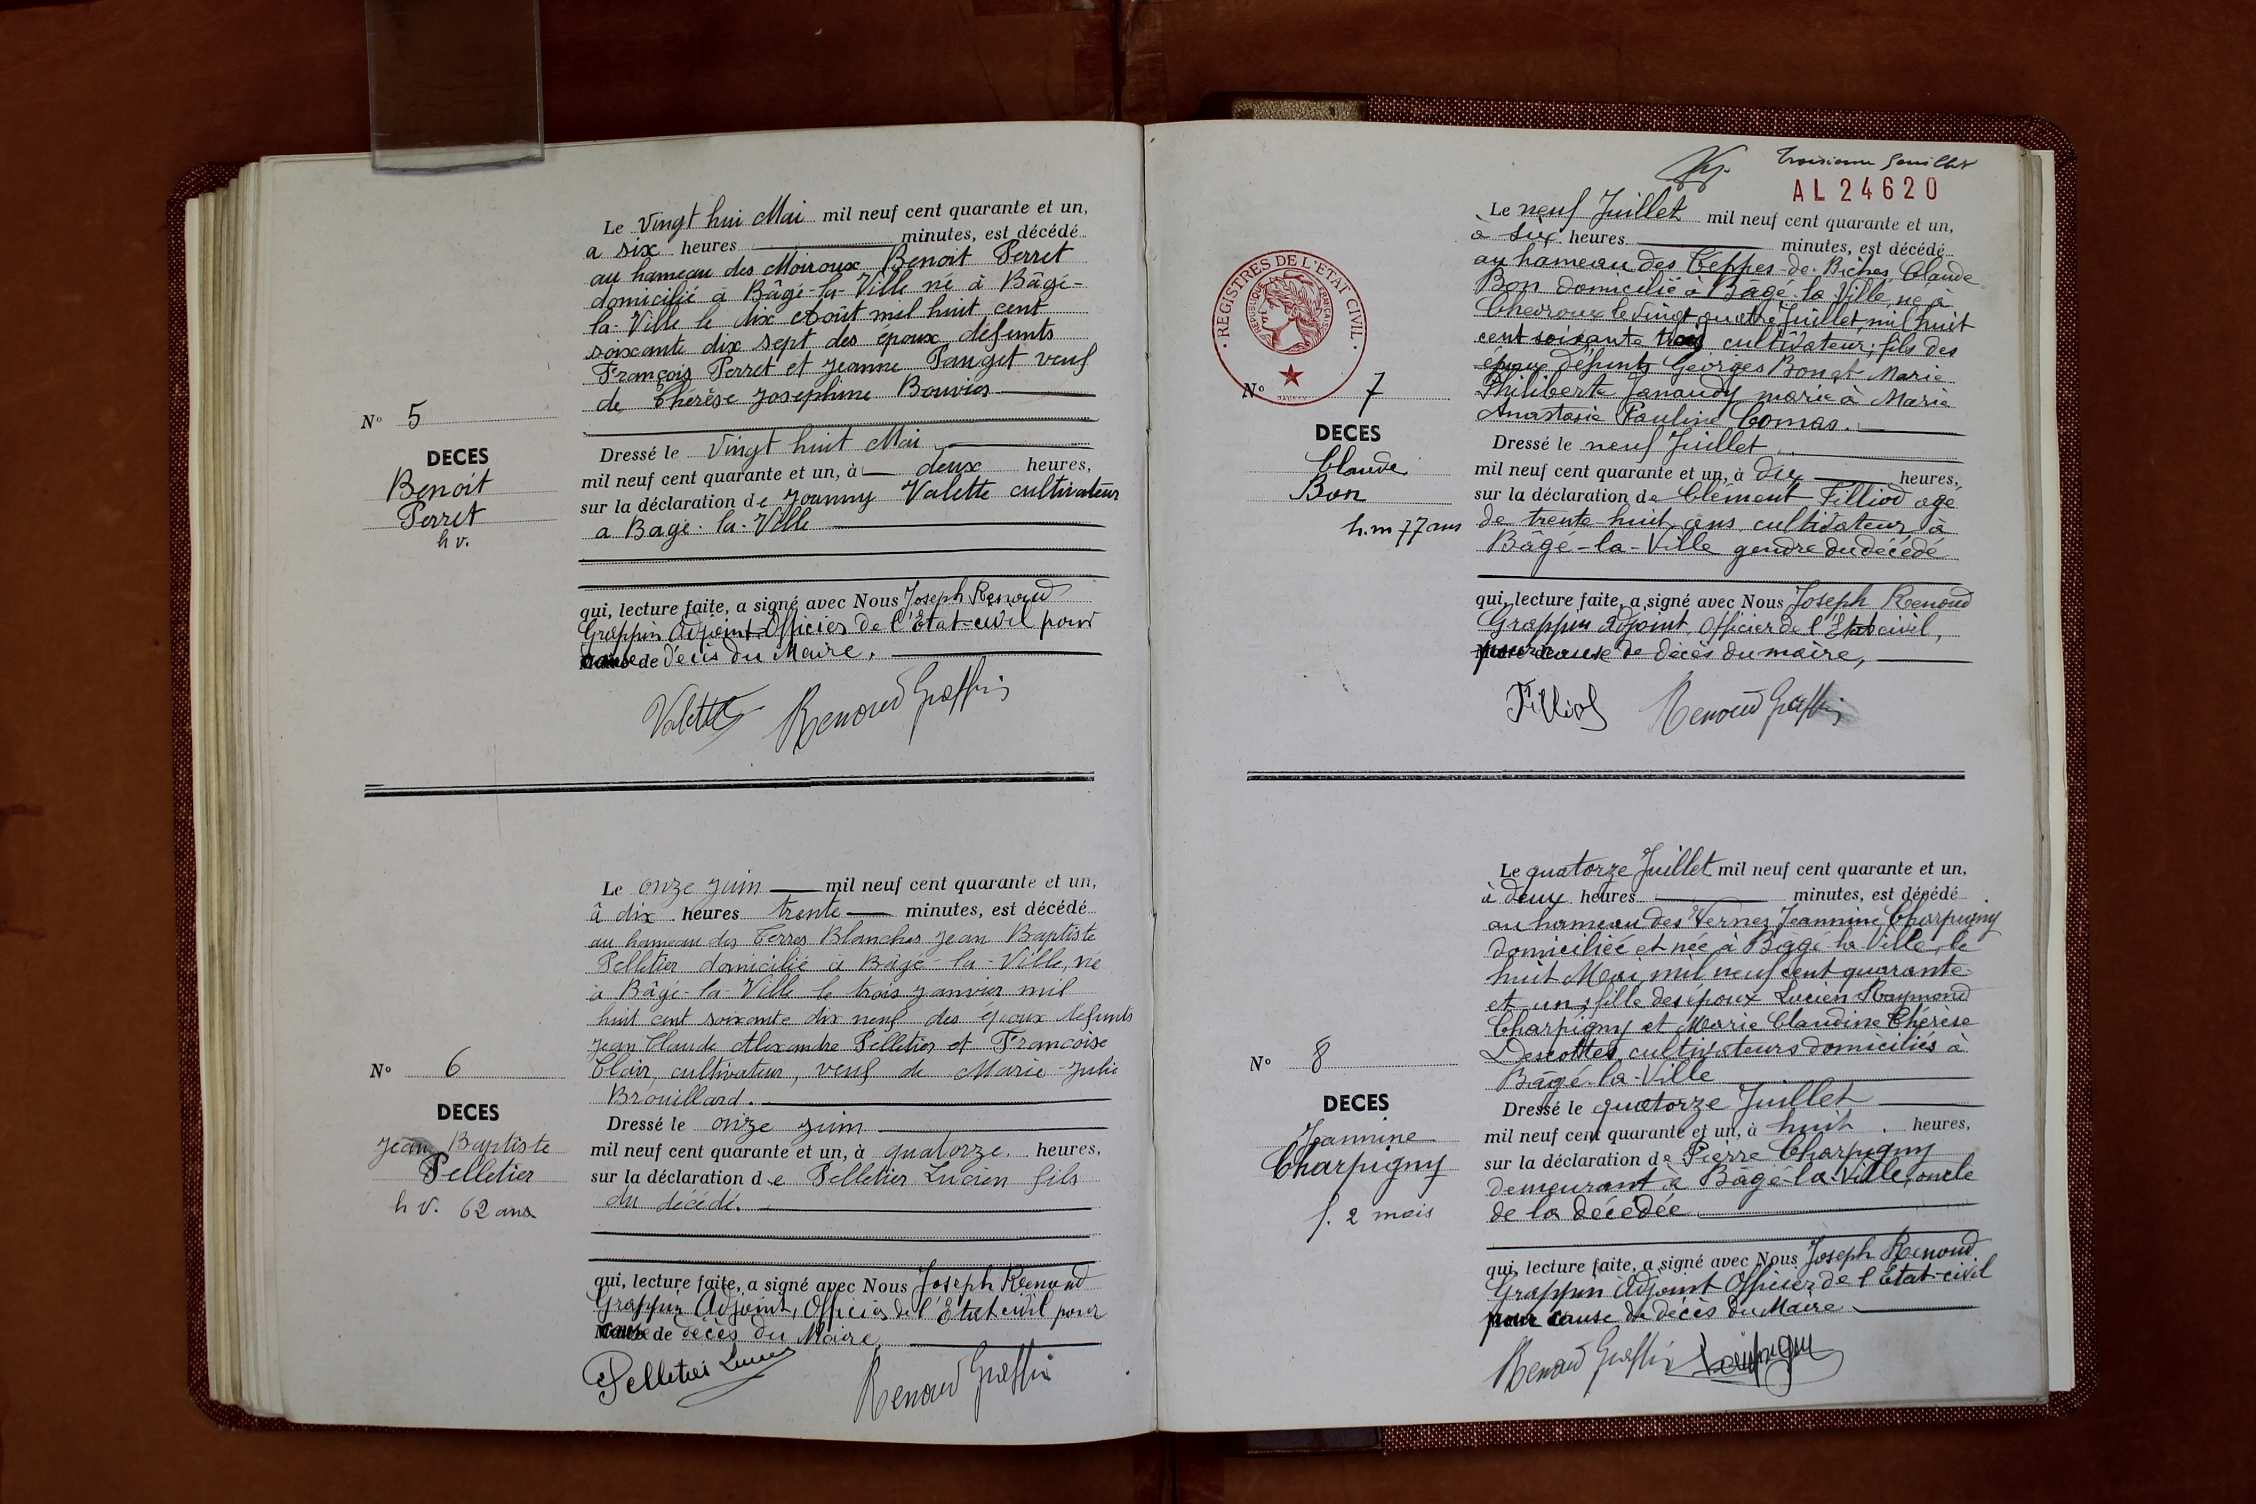 Le Vingt hui Mai mil neuf cent quarante et un,
a six heures minutes, est décédé
au hameau des Moiroux Benoit Perret
domicilié à Bâgé-la-Ville né à Bâgé-
la-Ville le dix Août mil huit cent
soixante dix sept des époux défunts
François Perret et Jeanne Panget veuf
de Thérèse Josephine Bouvier
N° 5
DECES
Benoit
Perret
h v.
Dressé le Vingt huit Mai
mil neuf cent quarante et un, à deux heures,
sur la déclaration de Joanny Valette cultivateur
a Bagé-la-Ville
qui, lecture faite, a signé avec Nous Joseph Renoud
Grappin Adjoint Officier de l'Etat-civil pour
cause de décès du Maire.
Valette Renoud Grappin
Le onze juin mil neuf cent quarante et un,
à dix heures trente minutes, est décédé
au hameau des Terres Blanches Jean Baptiste
Pelletier domicilié à Bâgé-la-Ville, né
à Bâgé-la-Ville le trois janvier mil
huit cent soixante dix neuf des époux défunts
Jean Claude Alexandre Pelletier et Francoise
Clair, cultivateur, veuf de Marie-Julie
Brouillard.
N° 6
DECES
Jean Baptiste
Pelletier
h v. 62 ans
Dressé le onze juin
mil neuf cent quarante et un, à quatorze heures,
sur la déclaration de Pelletier Lucien fils
du décédé.
qui, lecture faite, a signé avec Nous Joseph Renoud
Grappin Adjoint, Officier de l'Etat civil pour
cause de décès du Maire
Pelletier Lucien Renoud Grappin
Troisième feuillet
AL 24620
REGISTRES DE L'ETAT CIVIL
Le neuf Juillet mil neuf cent quarante et un,
à six heures minutes, est décédé
au hameau des Teppes-de-Biches, Claude
Bon domicilié à Bâgé-la-Ville, né à
Chevroux le vingt quatre Juillet, mil huit
cent soixante trois cultivateur; fils des
époux défunts Georges Bon et Marie
Philiberte Janaudy marié à Marie
Anastasie Pauline Comas.
N° 7
DECES
Claude
Bon
h.m 77 ans
Dressé le neuf Juillet
mil neuf cent quarante et un, à dix heures,
sur la déclaration de Clément Filliod agé
de trente huit ans cultivateur à
Bâgé-la-Ville gendre du décédé
qui, lecture faite, a signé avec Nous Joseph Renoud
Grappin adjoint, Officier de l'Etat civil,
pour cause de décès du maire,
Filliod Renoud Grappin
Le quatorze Juillet mil neuf cent quarante et un,
à deux heures minutes, est décédé
au hameau des Vernes Jeannine Charpigny
domiciliée et née à Bâgé-la-Ville, le
huit Mai, mil neuf cent quarante
et un, fille des époux Lucien Raymond
Charpigny et Marie Claudine Thérèse
Descottes, cultivateurs domiciliés à
Bâgé-la-Ville
N° 8
DECES
Jeannine
Charpigny
f. 2 mois
Dressé le quatorze Juillet
mil neuf cent quarante et un, à huit heures,
sur la déclaration de Pierre Charpigny
demeurant à Bâgé-la-Ville, oncle
de la décédée
qui, lecture faite, a signé avec Nous Joseph Renoud
Grappin Adjoint Officier de l'Etat-civil
pour cause de décès du Maire
Renoud Grappin Charpigny